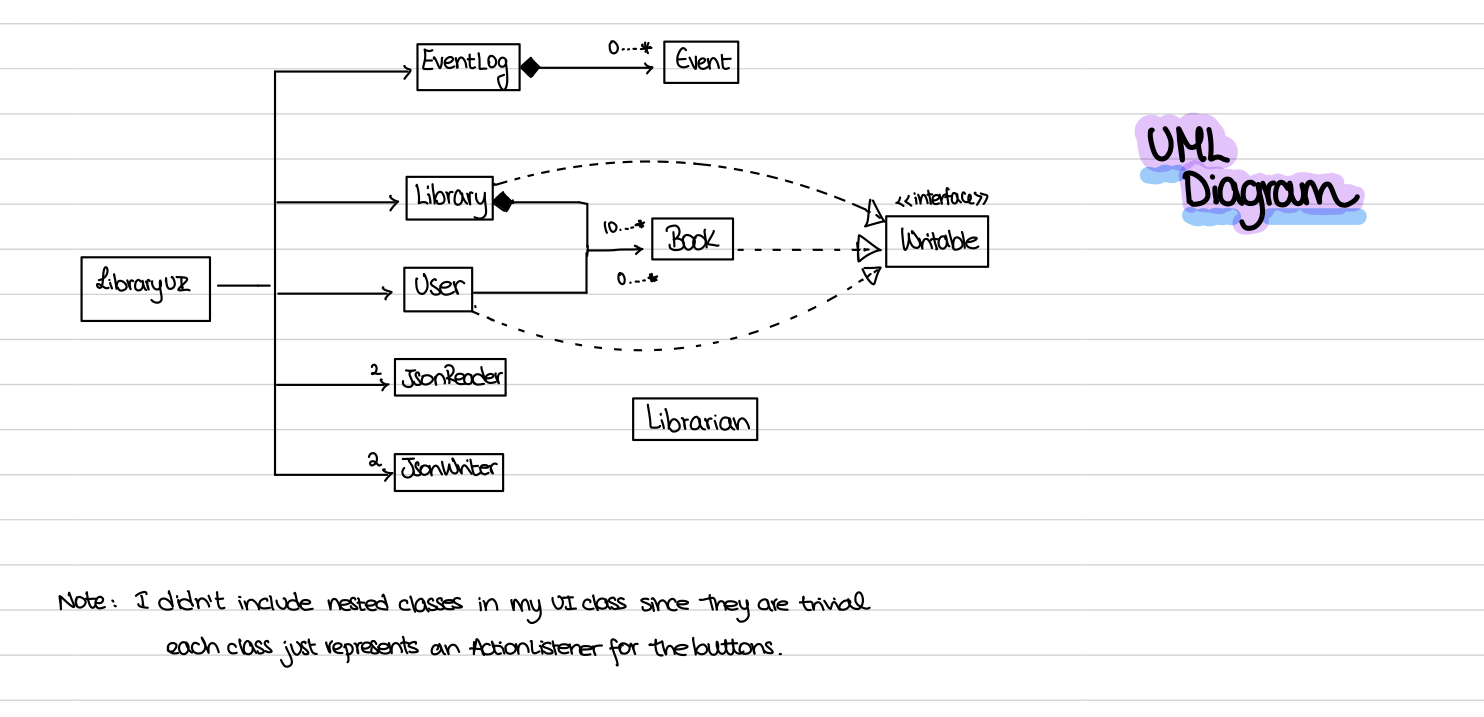 EventLog
0...*
Event
UML
Diagram
Library
<<interface>>
Writable
10...*
Book
LibraryUI
User
0...*
2
JsonReader
Librarian
2
JsonWriter
Note: I didn't include nested classes in my UI class since they are trivial
each class just represents an ActionListener for the buttons.